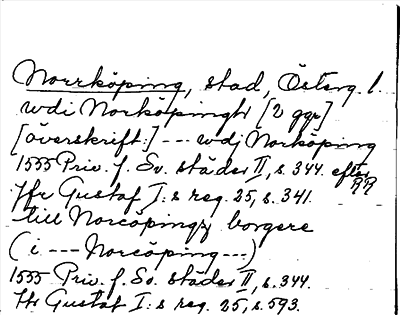 Norrköping, stad, Österg. l.
wdi Norköpingh [2 ggr]
[överskrift:] --- wdj Norköping
1555 Priv. f. Sv. städer II, s. 344. efter RR
Jfr Gustaf I:s reg. 25, s. 341.
till Norcöpingz borgere
(i --- Norcöping ---)
1555 Priv. f. Sv. städer II, s. 344.
Jfr Gustaf I:s reg. 25, s. 593.